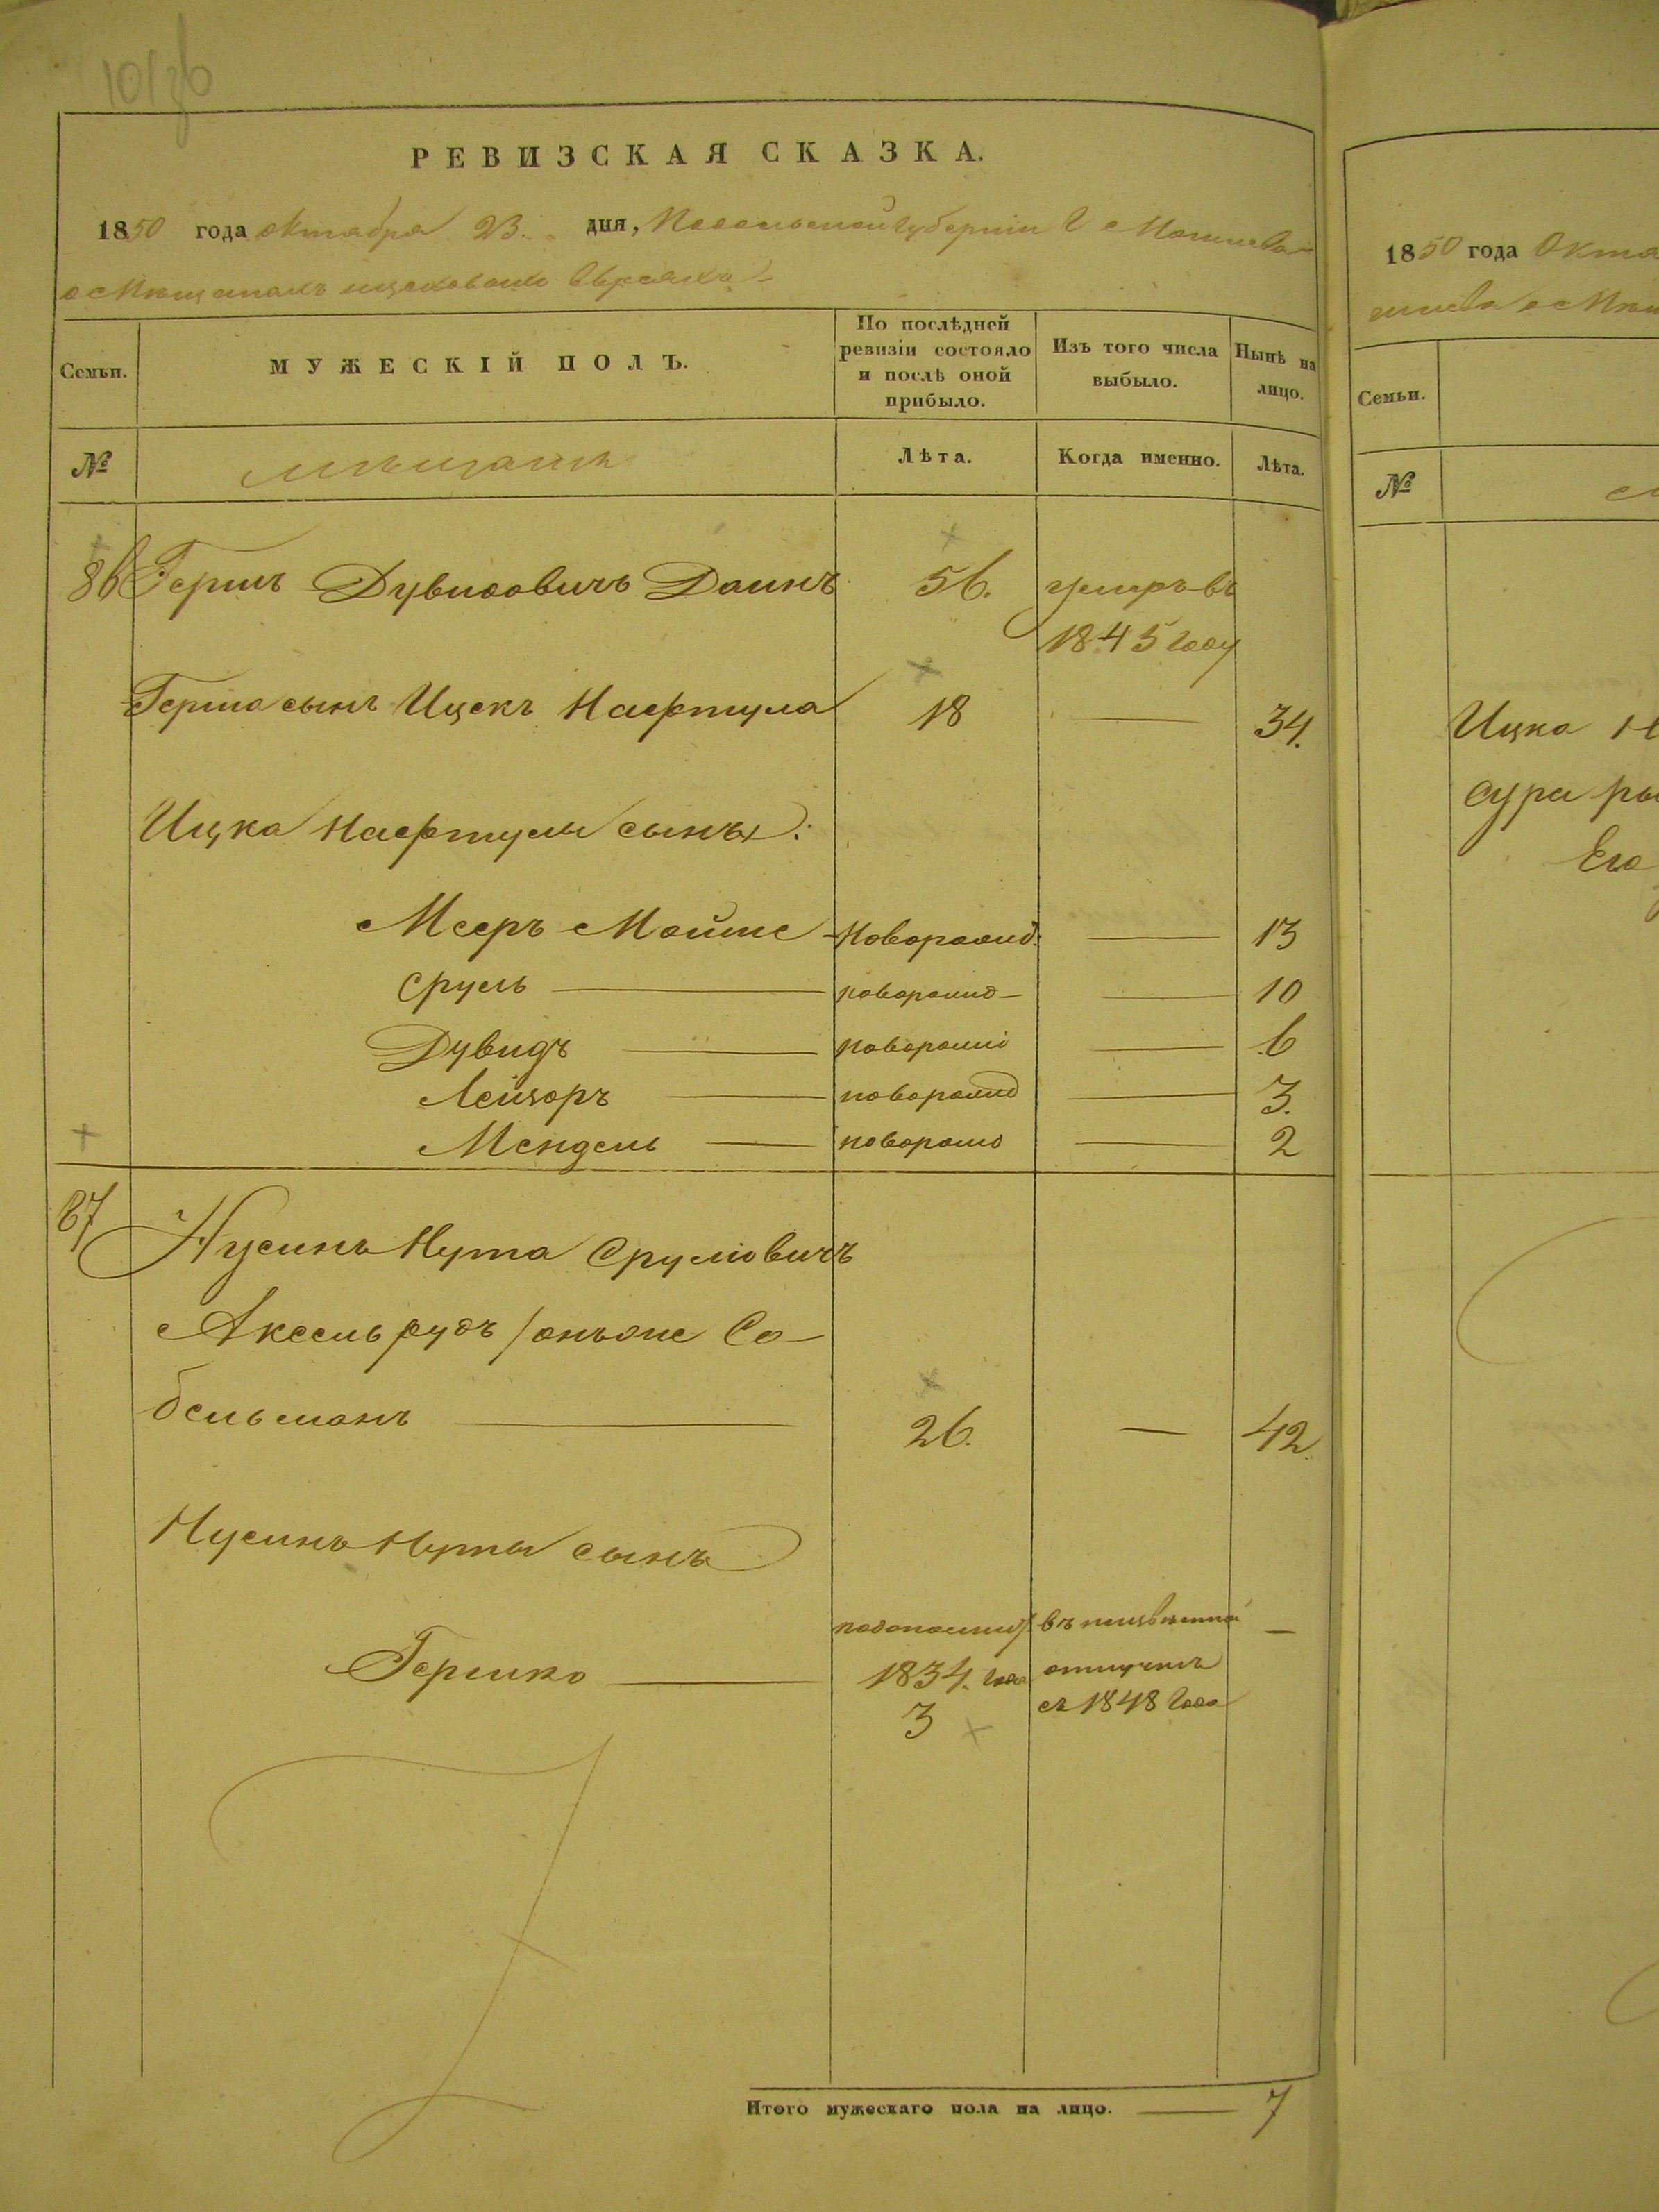 РЕВИЗСКАЯ СКАЗКА.
1850 года октября 23. дня, Подольской губернии г Могилева
о Мещанах евреяхъ
Семьи.
МУЖЕСКІЙ ПОЛЪ.
По послѣдней ревизіи состояло и послѣ оной прибыло.
Изъ того числа выбыло.
Нынѣ на лицо.
№
мещане
Лѣта.
Когда именно.
Лѣта.
86 Гершъ Дувидовичъ Даинъ 56. умеръ въ
1845 году
Герша сынъ Ицекъ Нафтула 18 — 34.
Ицка Нафтулы сыны:
Мееръ Мойше новорожд: — 13
Сруль — новорожд — 10
Дувидъ — новорожд — 6
Лейзоръ — новорожд — 3.
Мендель — новорожд — 2
87 Нусинъ Нута Срулiовичъ
Аксельрудъ / онъже Со-
бельманъ — 26. — 42.
Нусинъ Нуты сынъ
Гершко — 1834. года
3
въ неизвѣстной
отлучкѣ
съ 1848 года
—
Итого мужескаго пола на лицо. — 7
1850 года Октя
№
Семьи.
Ицка Н
сура ры
Его